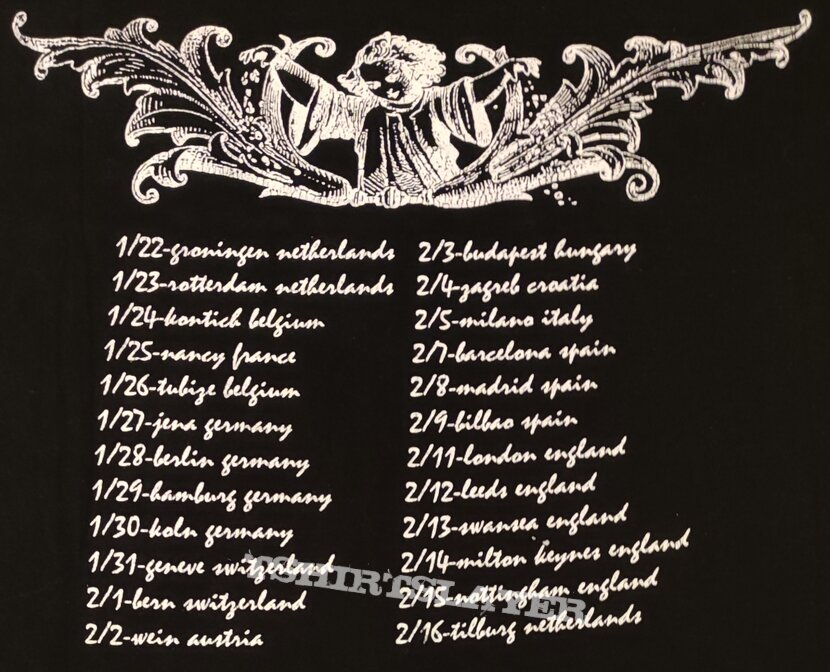 1/22-groningen netherlands
1/23-rotterdam netherlands
1/24-kontich belgium
1/25-nancy france
1/26-tubize belgium
1/27-jena germany
1/28-berlin germany
1/29-hamburg germany
1/30-koln germany
1/31-geneve switzerland
2/1-bern switzerland
2/2-wein austria
2/3-budapest hungary
2/4-zagreb croatia
2/5-milano italy
2/7-barcelona spain
2/8-madrid spain
2/9-bilbao spain
2/11-london england
2/12-leeds england
2/13-swansea england
2/14-milton keynes england
2/15-nottingham england
2/16-tilburg netherlands
TSHIRTSLAYER